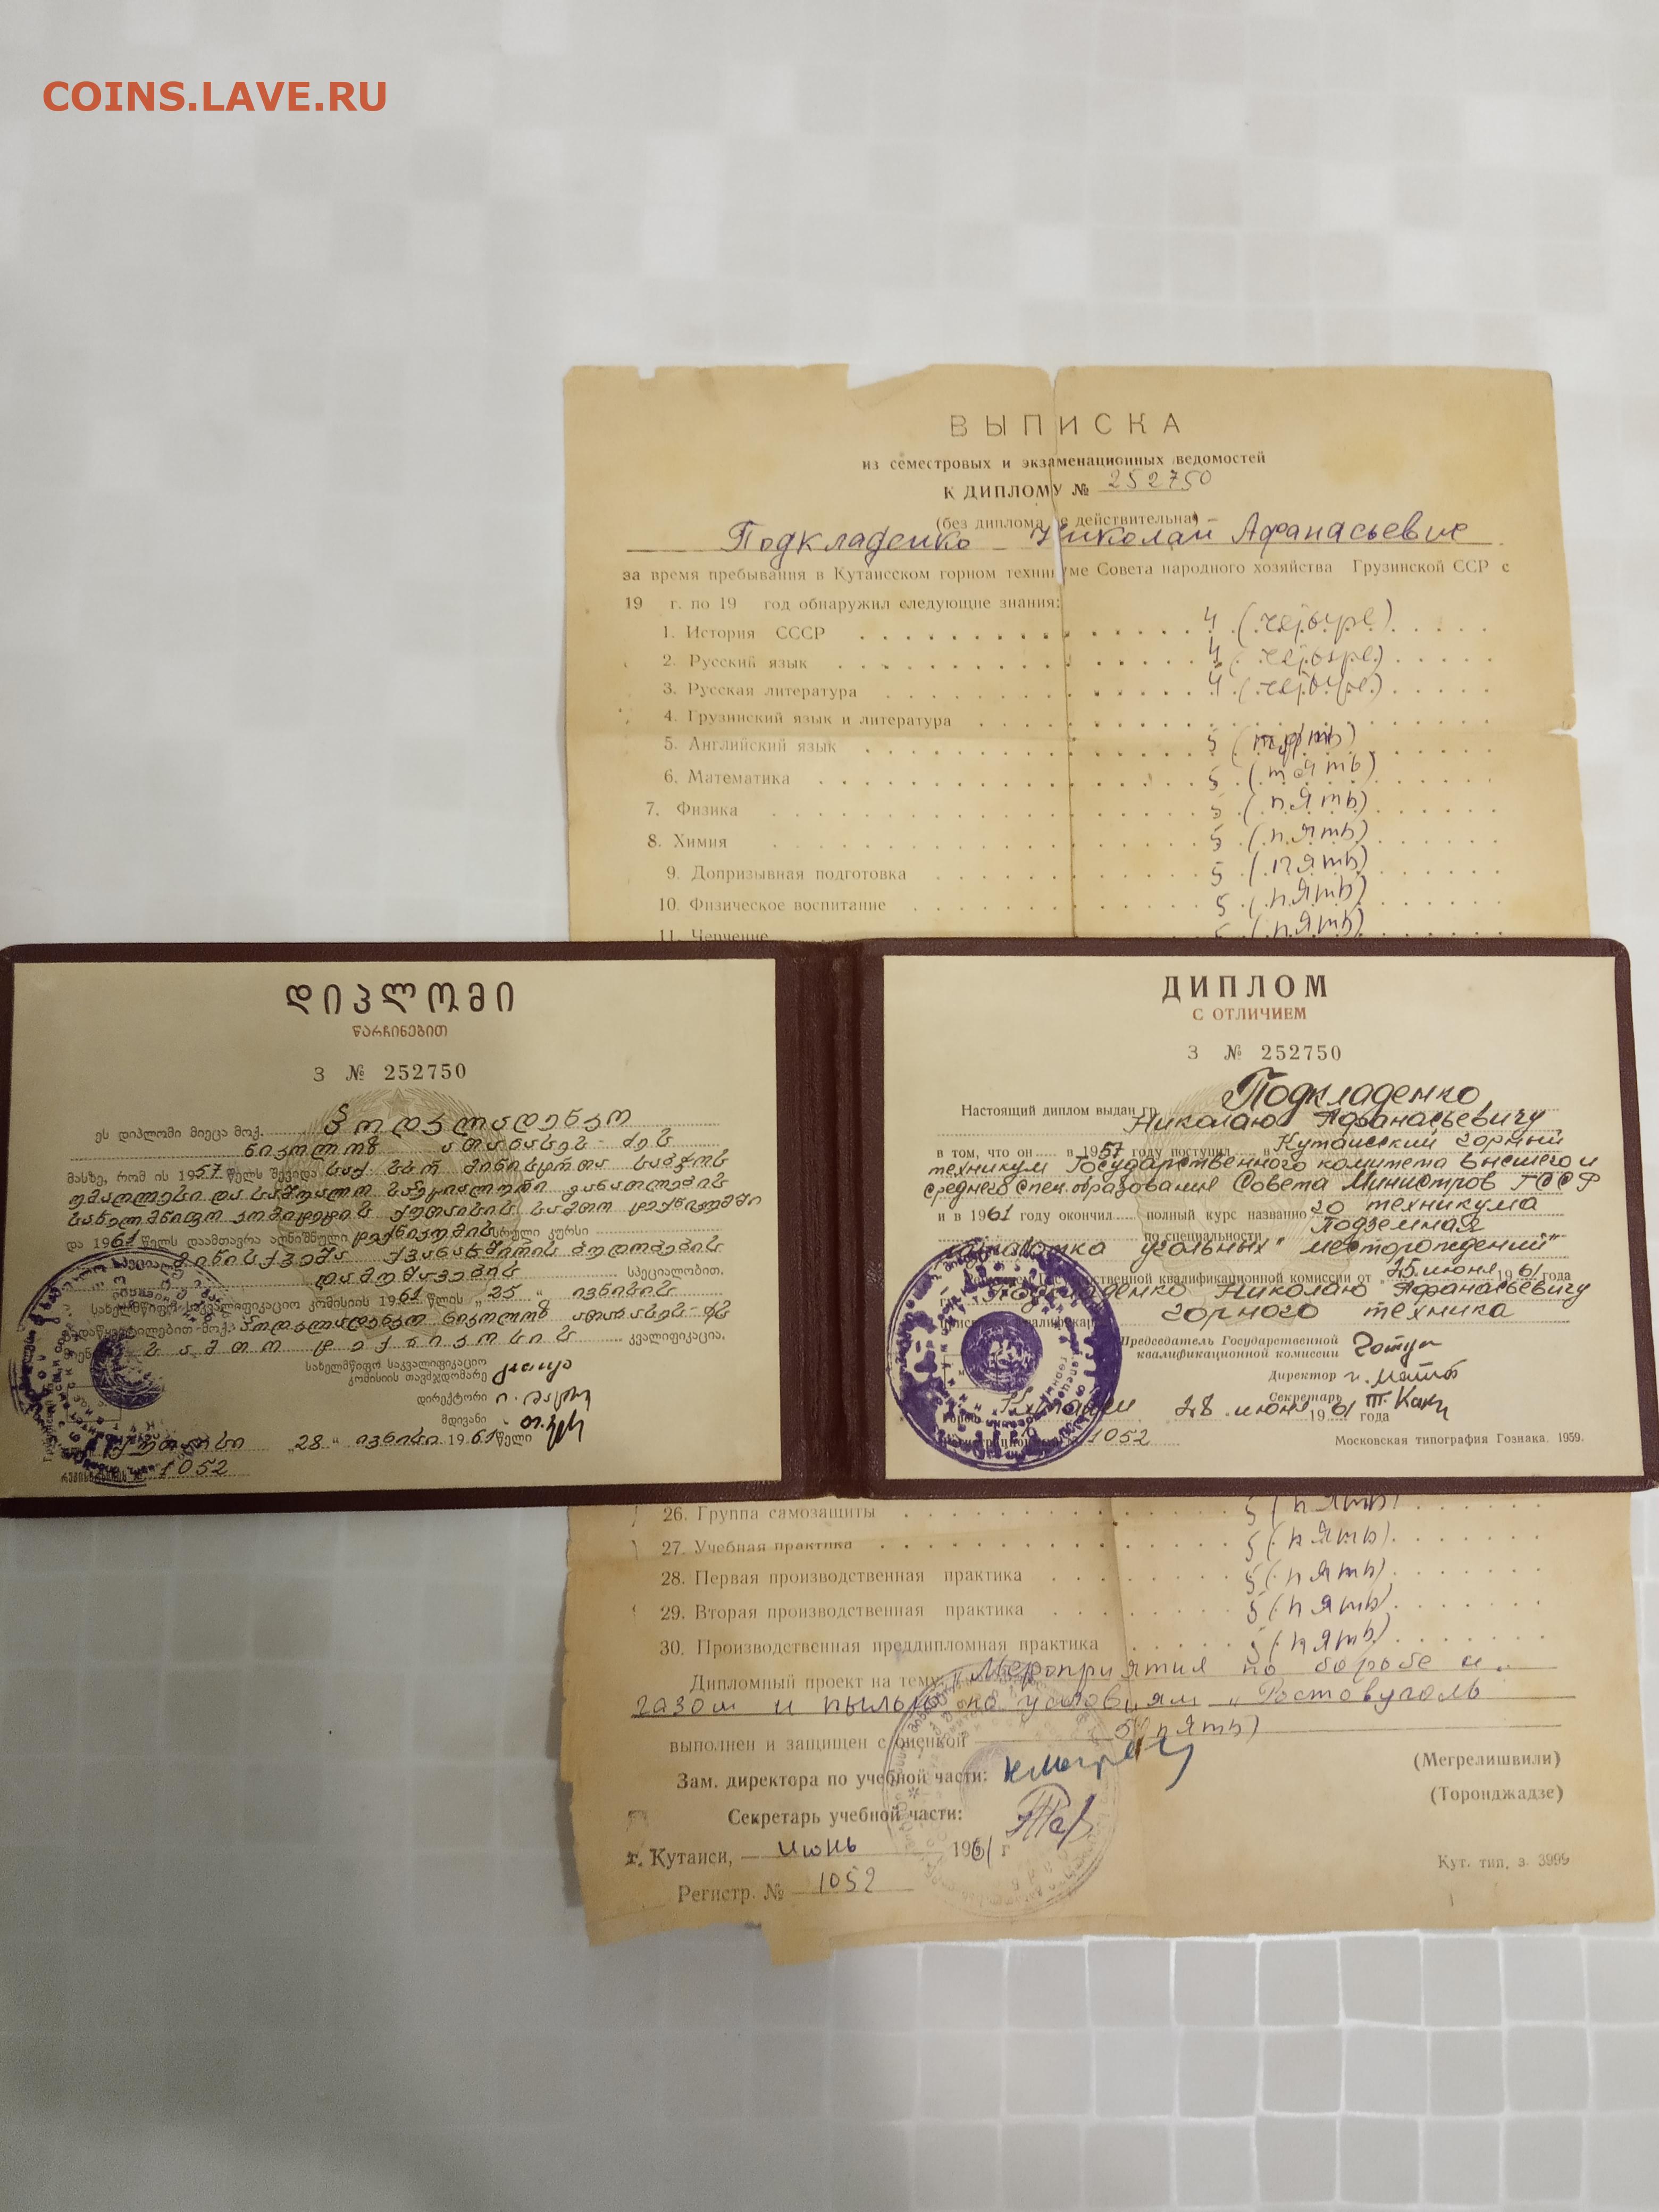 COINS.LAVE.RU
ВЫПИСКА
из семестровых и экзаменационных ведомостей
К ДИПЛОМУ № 252750
(без диплома не действительна)
Подкладенко Николай Афанасьевич
за время пребывания в Кутаисском горном техникуме Совета народного хозяйства Грузинской ССР с
19 г. по 19 год обнаружил следующие знания:
1. История СССР 4 (четыре)
2. Русский язык 4 (четыре)
3. Русская литература 4 (четыре)
4. Грузинский язык и литература
5. Английский язык 5 (пять)
6. Математика 5 (пять)
7. Физика 5 (пять)
8. Химия 5 (пять)
9. Допризывная подготовка 5 (пять)
10. Физическое воспитание 5 (пять)
11. Черчение 5 (пять)
დიპლომი
წარჩინებით
З № 252750
ეს დიპლომი მიეცა მოქ. პოდკლადენკო
ნიკოლოზ ათანასეს-ძეს
მასზე, რომ ის 1957 წელს შევიდა საქ. სსრ მინისტრთა საბჭოს
უმაღლესი და საშუალო სპეციალური განათლების
სახელმწიფო კომიტეტის ქუთაისის სამთო ტექნიკუმში
და 1961 წელს დაამთავრა აღნიშნული ტექნიკუმის სრული კურსი
მიწისქვეშა ქვანახშირის ბუდობების
დამუშავების სპეციალობით.
სახელმწიფო საკვალიფიკაციო კომისიის 1961 წლის „25“ ივნისის
გადაწყვეტილებით მოქ. პოდკლადენკო ნიკოლოზ ათანასეს-ძეს
სამთო ტექნიკოსის კვალიფიკაცია.
სახელმწიფო საკვალიფიკაციო
კომისიის თავმჯდომარე
დირექტორი
მდივანი
ქუთაისი „28“ ივნისი 1961 წელი
1052
ДИПЛОМ
С ОТЛИЧИЕМ
З № 252750
Настоящий диплом выдан гр. Подкладенко
Николаю Афанасьевичу
в том, что он в 1957 году поступил в Кутаисский горный
техникум Государственного комитета высшего и
среднего спец. образования Совета Министров ГССР
и в 1961 году окончил полный курс названного техникума
по специальности Подземная
разработка угольных месторождений"
Решением Государственной квалификационной комиссии от 25 июня 1961 года
гр. Подкладенко Николаю Афанасьевичу
горного техника
Председатель Государственной
квалификационной комиссии
Директор
Секретарь
город Кутаиси 28 июня 1961 года
1052
Московская типография Гознака. 1959.
26. Группа самозащиты 5 (пять)
27. Учебная практика 5 (пять)
28. Первая производственная практика 5 (пять)
29. Вторая производственная практика 5 (пять)
30. Производственная преддипломная практика 5 (пять)
Дипломный проект на тему: "Мероприятия по борьбе с
газом и пылью по условиям „Ростовуголь
выполнен и защищен с оценкой 5 (пять)
Зам. директора по учебной части: (Мегрелишвили)
Секретарь учебной части: (Торонджадзе)
г. Кутаиси, июнь 1961 г
Кут. тип. з. 3999
Регистр. № 1052